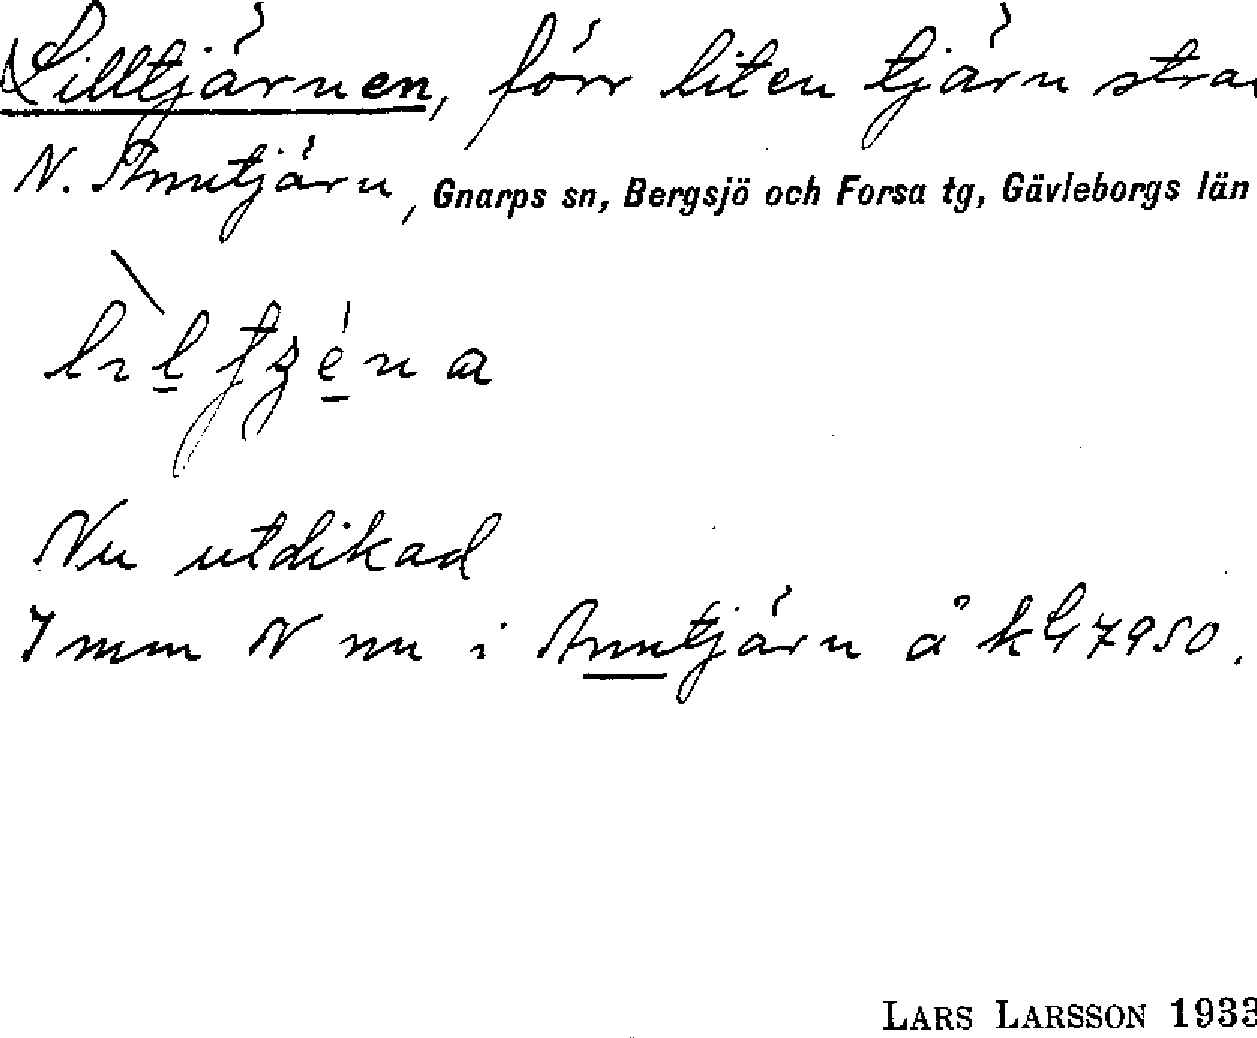 Lilltjärnen, förr liten tjärn stra
N. Anntjärn, Gnarps sn, Bergsjö och Forsa tg, Gävleborgs län
Nu utdikad
7 mm N nu i Anntjärn å kbl 7950.
LARS LARSSON 1933